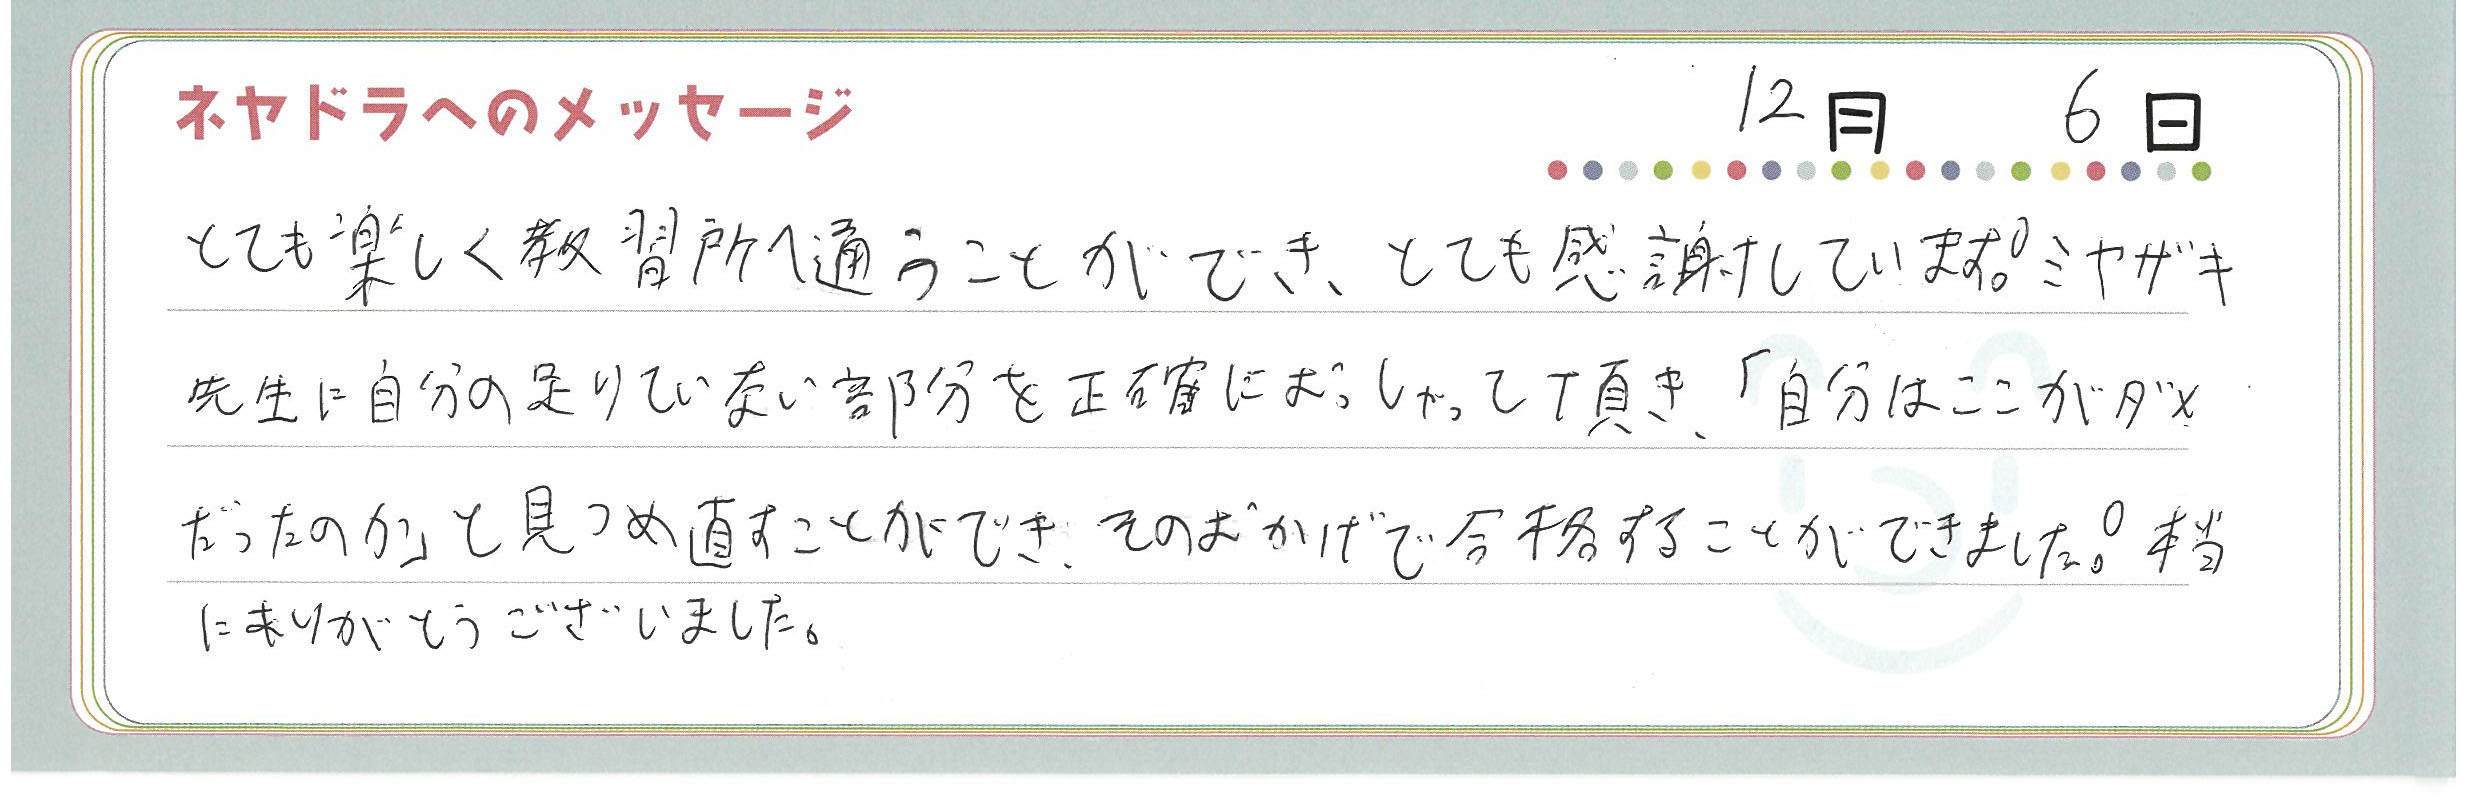 ネヤドラへのメッセージ
12月 6日
とても楽しく教習所へ通うことができ、とても感謝しています!。ミヤザキ
先生に自分の足りていない部分を正確におっしゃって頂き、「自分はここがダメ
だったのか」と見つめ直すことができ、そのおかげで合格することができました!。本当
にありがとうございました。